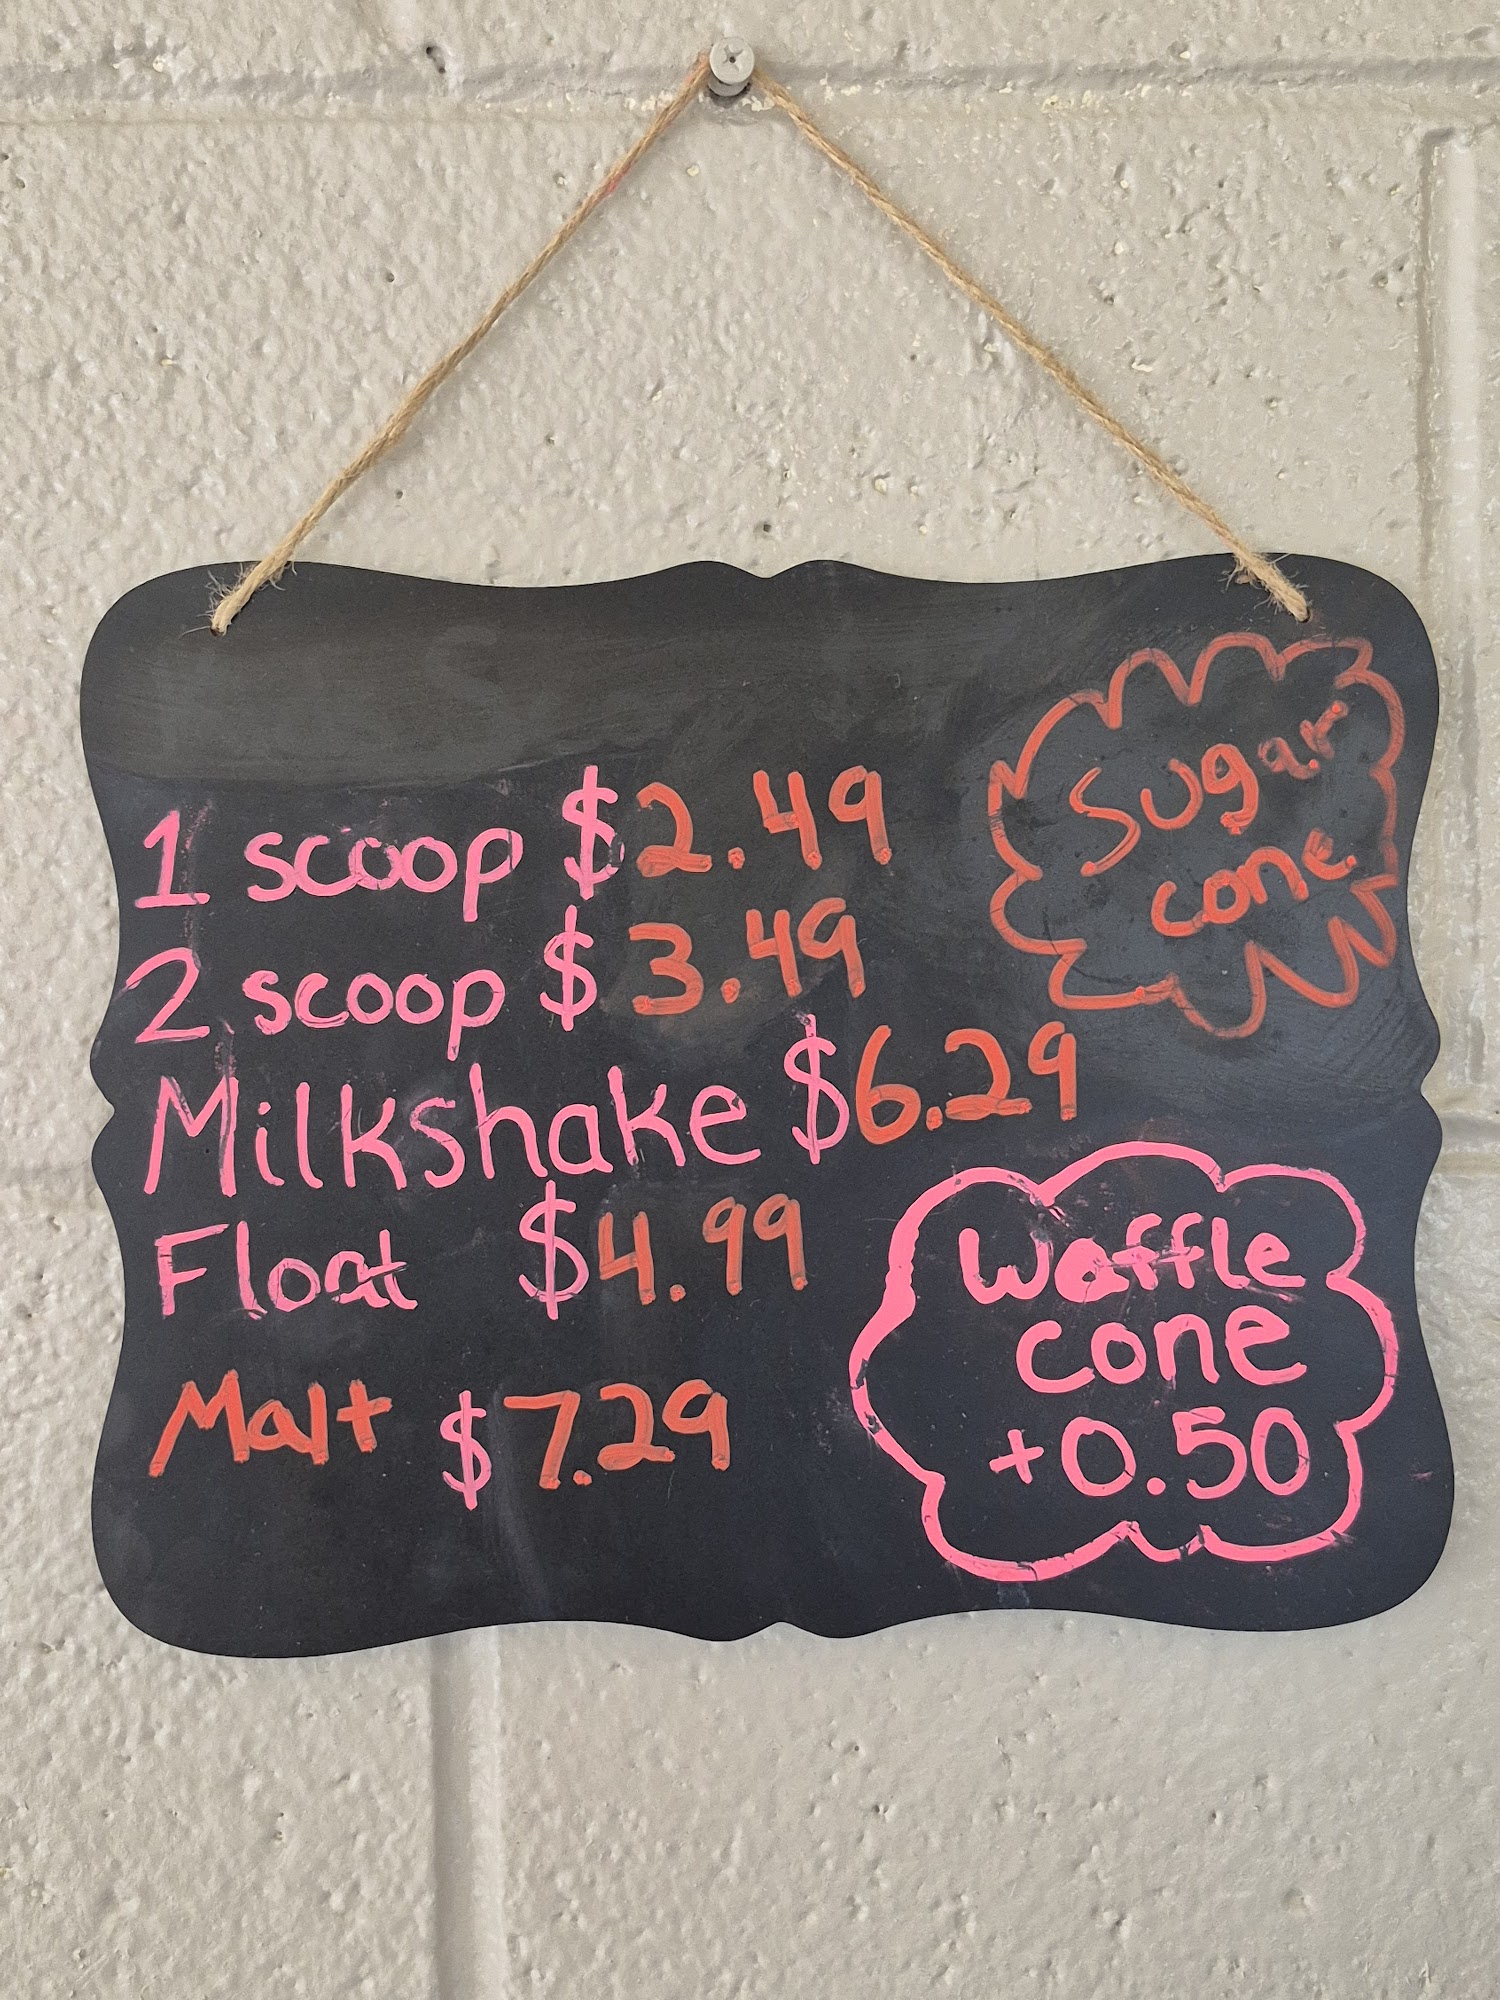 1 scoop $2.49
2 scoop $3.49
Milkshake $6.29
Float $4.99
Malt $7.29
Sugar
cone
Waffle
cone
+0.50